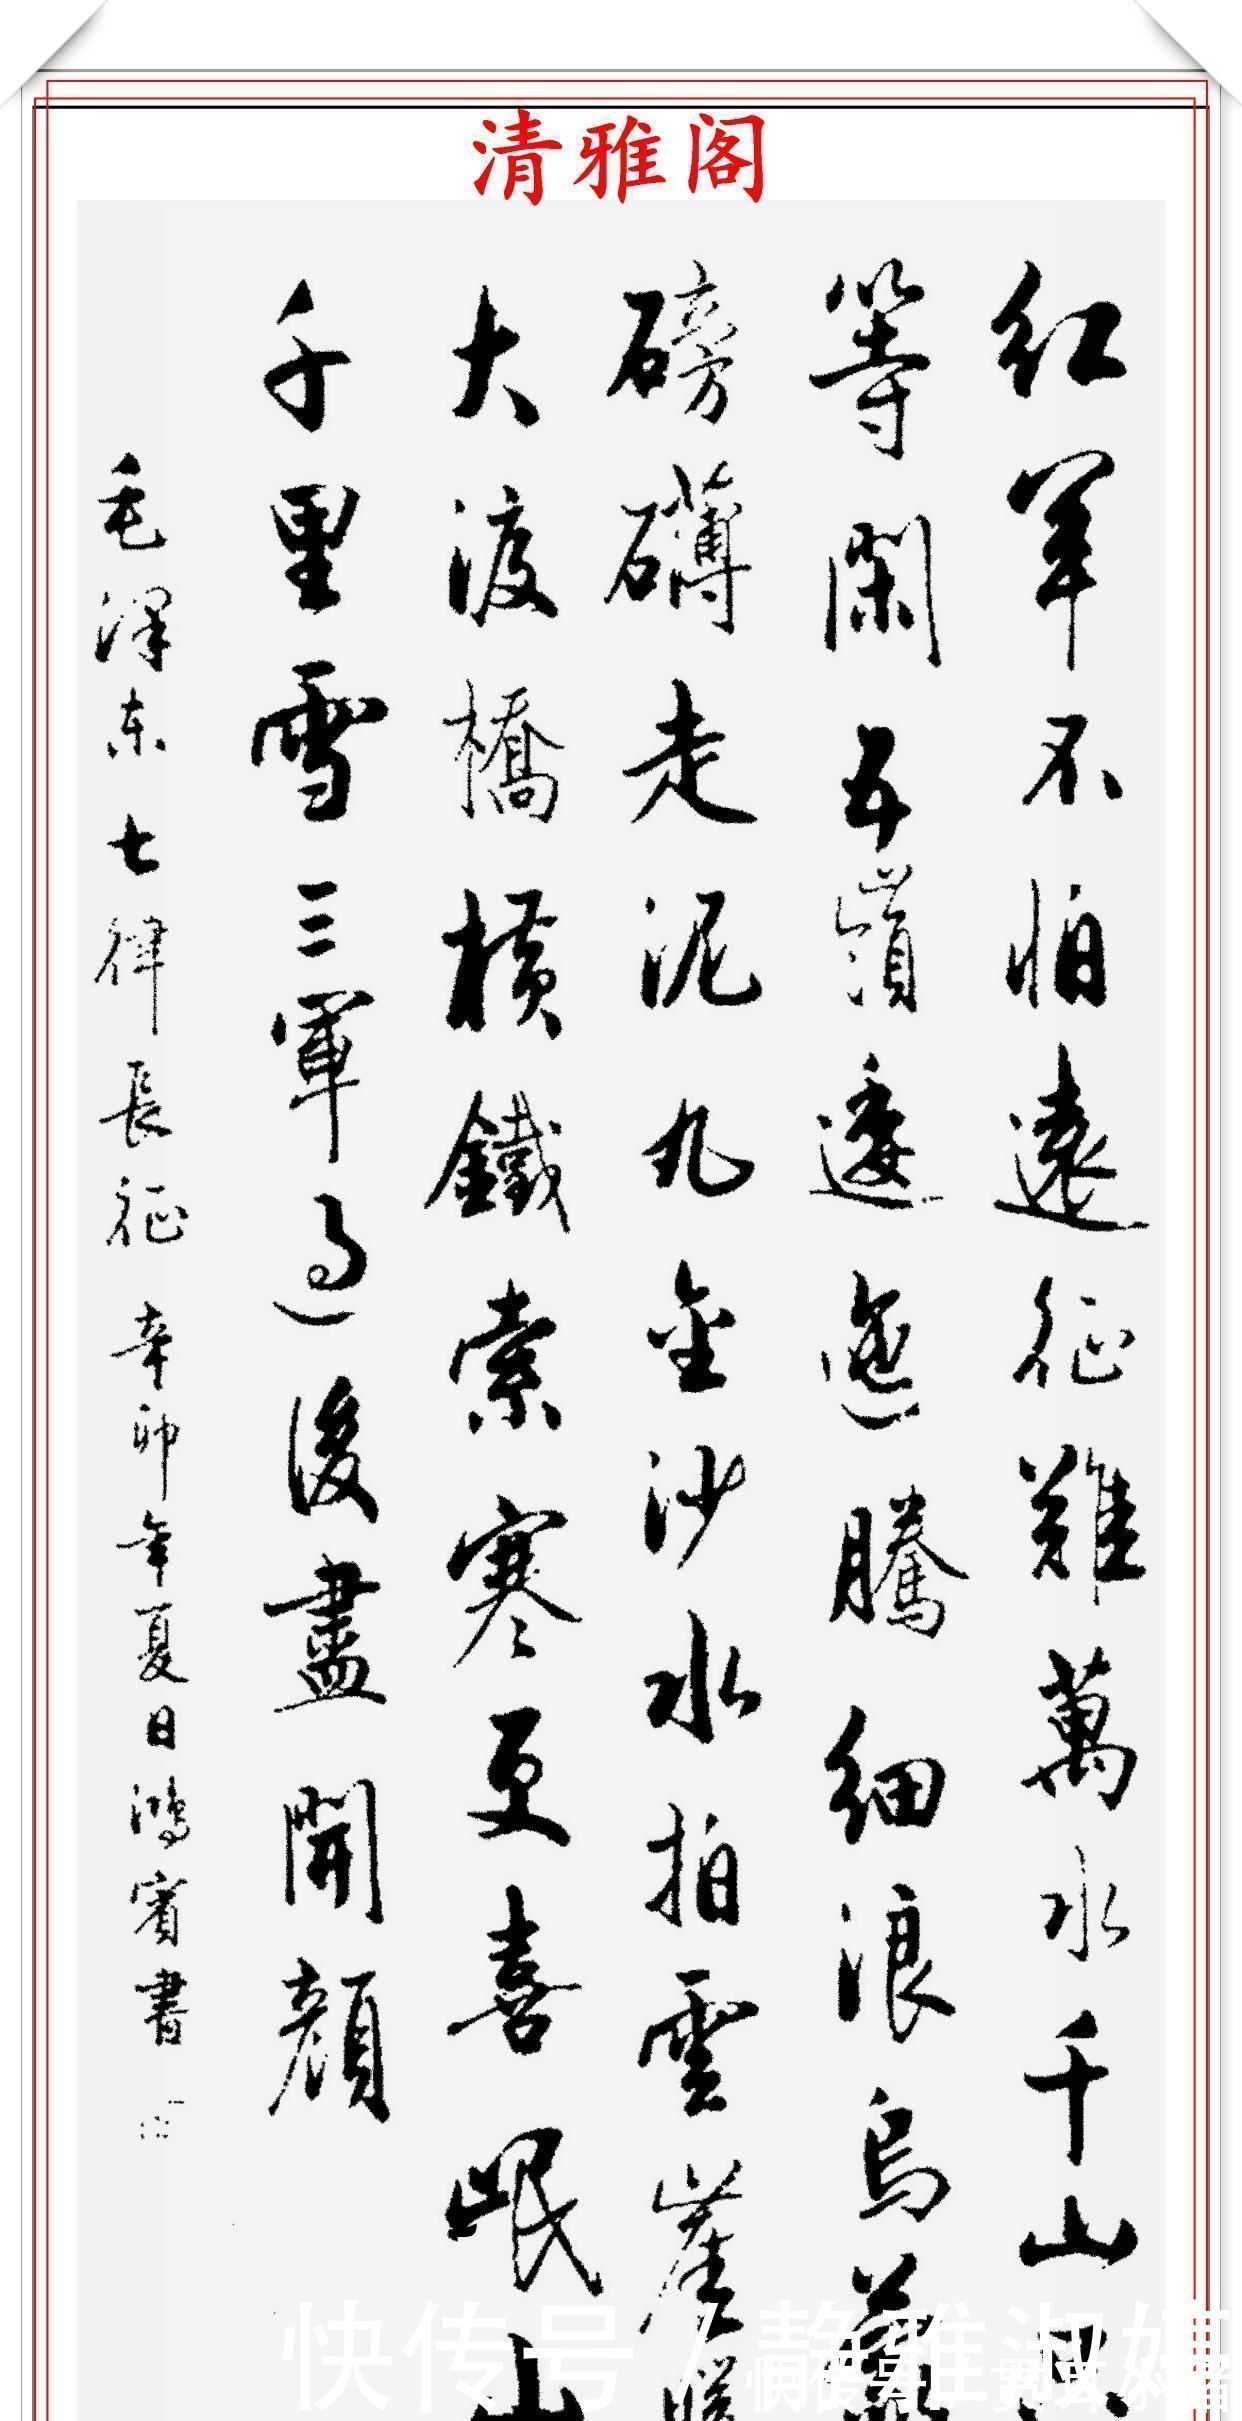 清雅阁
红軍不怕遠征難萬水千山只
等閑五嶺逶迤騰細浪烏蒙
磅礴走泥丸金沙水拍雲崖暖
大渡橋橫鐵索寒更喜岷山
千里雪三軍過後盡開顏
毛澤东七律長征辛卯年夏日鴻賓書
快传号/静雅淑婧